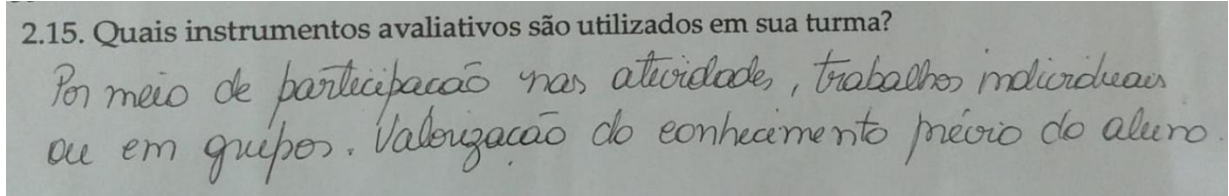 2.15. Quais instrumentos avaliativos são utilizados em sua turma?
Por meio de participação nas atividades, trabalhos individuais
ou em grupos. Valorização do conhecimento prévio do aluno.